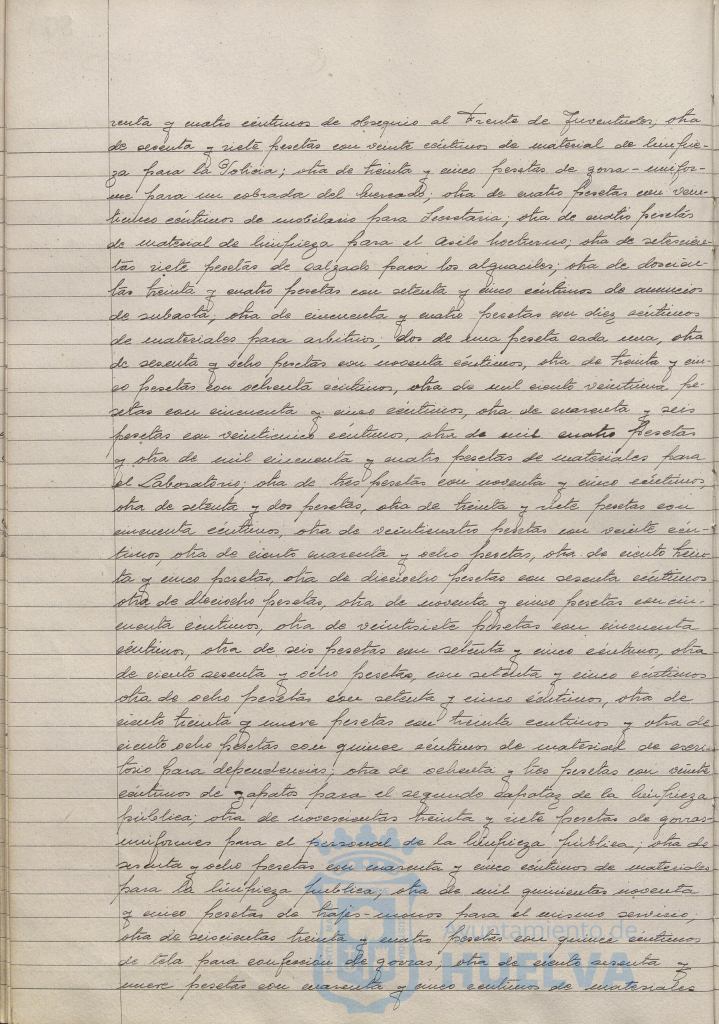 renta y cuatro céntimos de obsequio al Frente de Juventudes; otra
de sesenta y siete pesetas con veinte céntimos de material de limpie-
za para la Policia; otra de treinta y cinco pesetas de gorra-unifor-
me para un cobrador del Mercado; otra de cuatro pesetas con vein-
ticinco céntimos de mobilario para Secretaria; otra de cuatro pesetas
de material de limpieza para el asilo nocturno; otra de setecien-
tas siete pesetas de calzado para los alguaciles; otra de doscien-
tas treinta y cuatro pesetas con setenta y cinco céntimos de anuncios
de subasta; otra de cincuenta y cuatro pesetas con diez céntimos
de materiales para arbitrios; dos de una peseta cada una, otra
de sesenta y ocho pesetas con noventa céntimos, otra de treinta y cin-
co pesetas con ochenta céntimos, otra de mil ciento veintiuna pe-
setas con cincuenta y cinco céntimos, otra de cuarenta y seis
pesetas con veinticinco céntimos, otra de mil cuatro pesetas
y otra de mil cincuenta y cuatro pesetas de materiales para
el Laboratorio; otra de tres pesetas con noventa y cinco céntimos,
otra de setenta y dos pesetas, otra de treinta y siete pesetas con
cincuenta céntimos, otra de veinticuatro pesetas con veinte cén-
timos, otra de ciento cuarenta y ocho pesetas, otra de ciento trein-
ta y cinco pesetas, otra de dieciocho pesetas con sesenta céntimos
otra de dieciocho pesetas, otra de noventa y cinco pesetas con cin-
cuenta céntimos, otra de veintisiete pesetas con cincuenta
céntimos, otra de seis pesetas con setenta y cinco céntimos, otra
de ciento sesenta y ocho pesetas, con setenta y cinco céntimos
otra de ocho pesetas con setenta y cinco céntimos, otra de
ciento treinta y nueve pesetas con treinta centimos y otra de
ciento ocho pesetas con quince céntimos de material de escri-
torio para dependencias; otra de ochenta y tres pesetas con veinte
céntimos de zapatos para el segundo capataz de la limpieza
pública; otra de novecientas treinta y siete pesetas de gorras-
uniformes para el personal de la limpieza pública; otra de
sesenta y ocho pesetas con cuarenta y cinco céntimos de materiales
para la limpieza publica; otra de mil quinientas noventa
y cinco pesetas de trajes-monos para el mismo servicio;
otra de seiscientas treinta y cuatro pesetas con quince céntimos
de tela para confección de gorras; otra de ciento sesenta y
nueve pesetas con cuarenta y cinco centimos de materiales
Ayuntamiento de
HUELVA